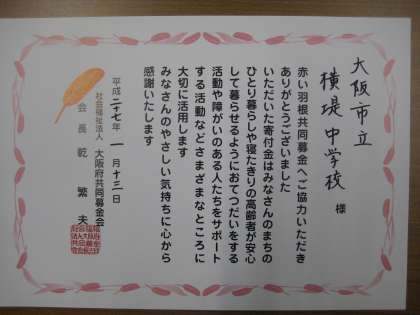 大阪市立
横堤中学校 様
赤い羽根共同募金へご協力いただき
ありがとうございました
いただいた寄付金はみなさんのまちの
ひとり暮らしや寝たきりの高齢者が安心
して暮らせるようにおてつだいをする
活動や障がいのある人たちをサポート
する活動などさまざまなところに
大切に活用します
みなさんのやさしい気持ちに心から
感謝いたします
平成二十七年 一月十三日
社会福祉法人 大阪府共同募金会
会長 乾 繁夫